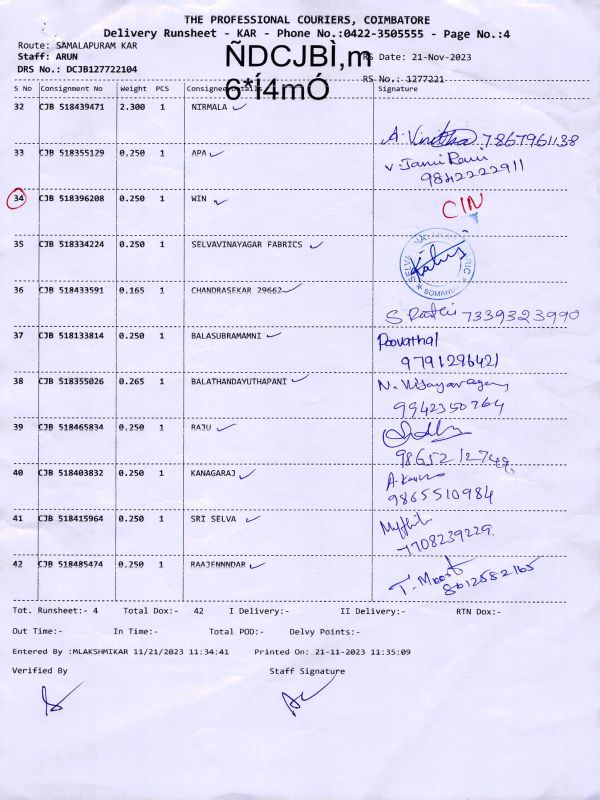 THE PROFESSIONAL COURIERS, COIMBATORE
Delivery Runsheet - KAR - Phone No.:0422-3505555 - Page No.:4
Route: SAMALAPURAM KAR
Staff: ARUN
ÑDCJBÌ,m
RS Date: 21-Nov-2023
DRS No.: DCJB127722104
6*Í4mÓ
RS No.: 1277221
S No Consignment No Weight PCS Consignee Details Signature
32 CJB 518439471 2.300 1 NIRMALA
A. Vinitha 7867961138
33 CJB 518355129 0.250 1 APA
V. Jansi Rani
9842222911
34 CJB 518396208 0.250 1 WIN CIN
35 CJB 518334224 0.250 1 SELVAVINAYAGAR FABRICS
SOMANU
36 CJB 518433591 0.165 1 CHANDRASEKAR 29662
S Rathi 7339323990
37 CJB 518133814 0.250 1 BALASUBRAMAMNI Poovathal
9791296421
38 CJB 518355026 0.265 1 BALATHANDAYUTHAPANI
9942350764
39 CJB 518465834 0.250 1 RAJU
40 CJB 518403832 0.250 1 KANAGARAJ
9865510984
41 CJB 518415964 0.250 1 SRI SELVA
7708239229
42 CJB 518485474 0.250 1 RAAJENNNDAR
8012582165
Tot. Runsheet:- 4 Total Dox:- 42 I Delivery:- II Delivery:- RTN Dox:-
Out Time:- In Time:- Total POD:- Delvy Points:-
Entered By :MLAKSHMIKAR 11/21/2023 11:34:41 Printed On: 21-11-2023 11:35:09
Verified By Staff Signature